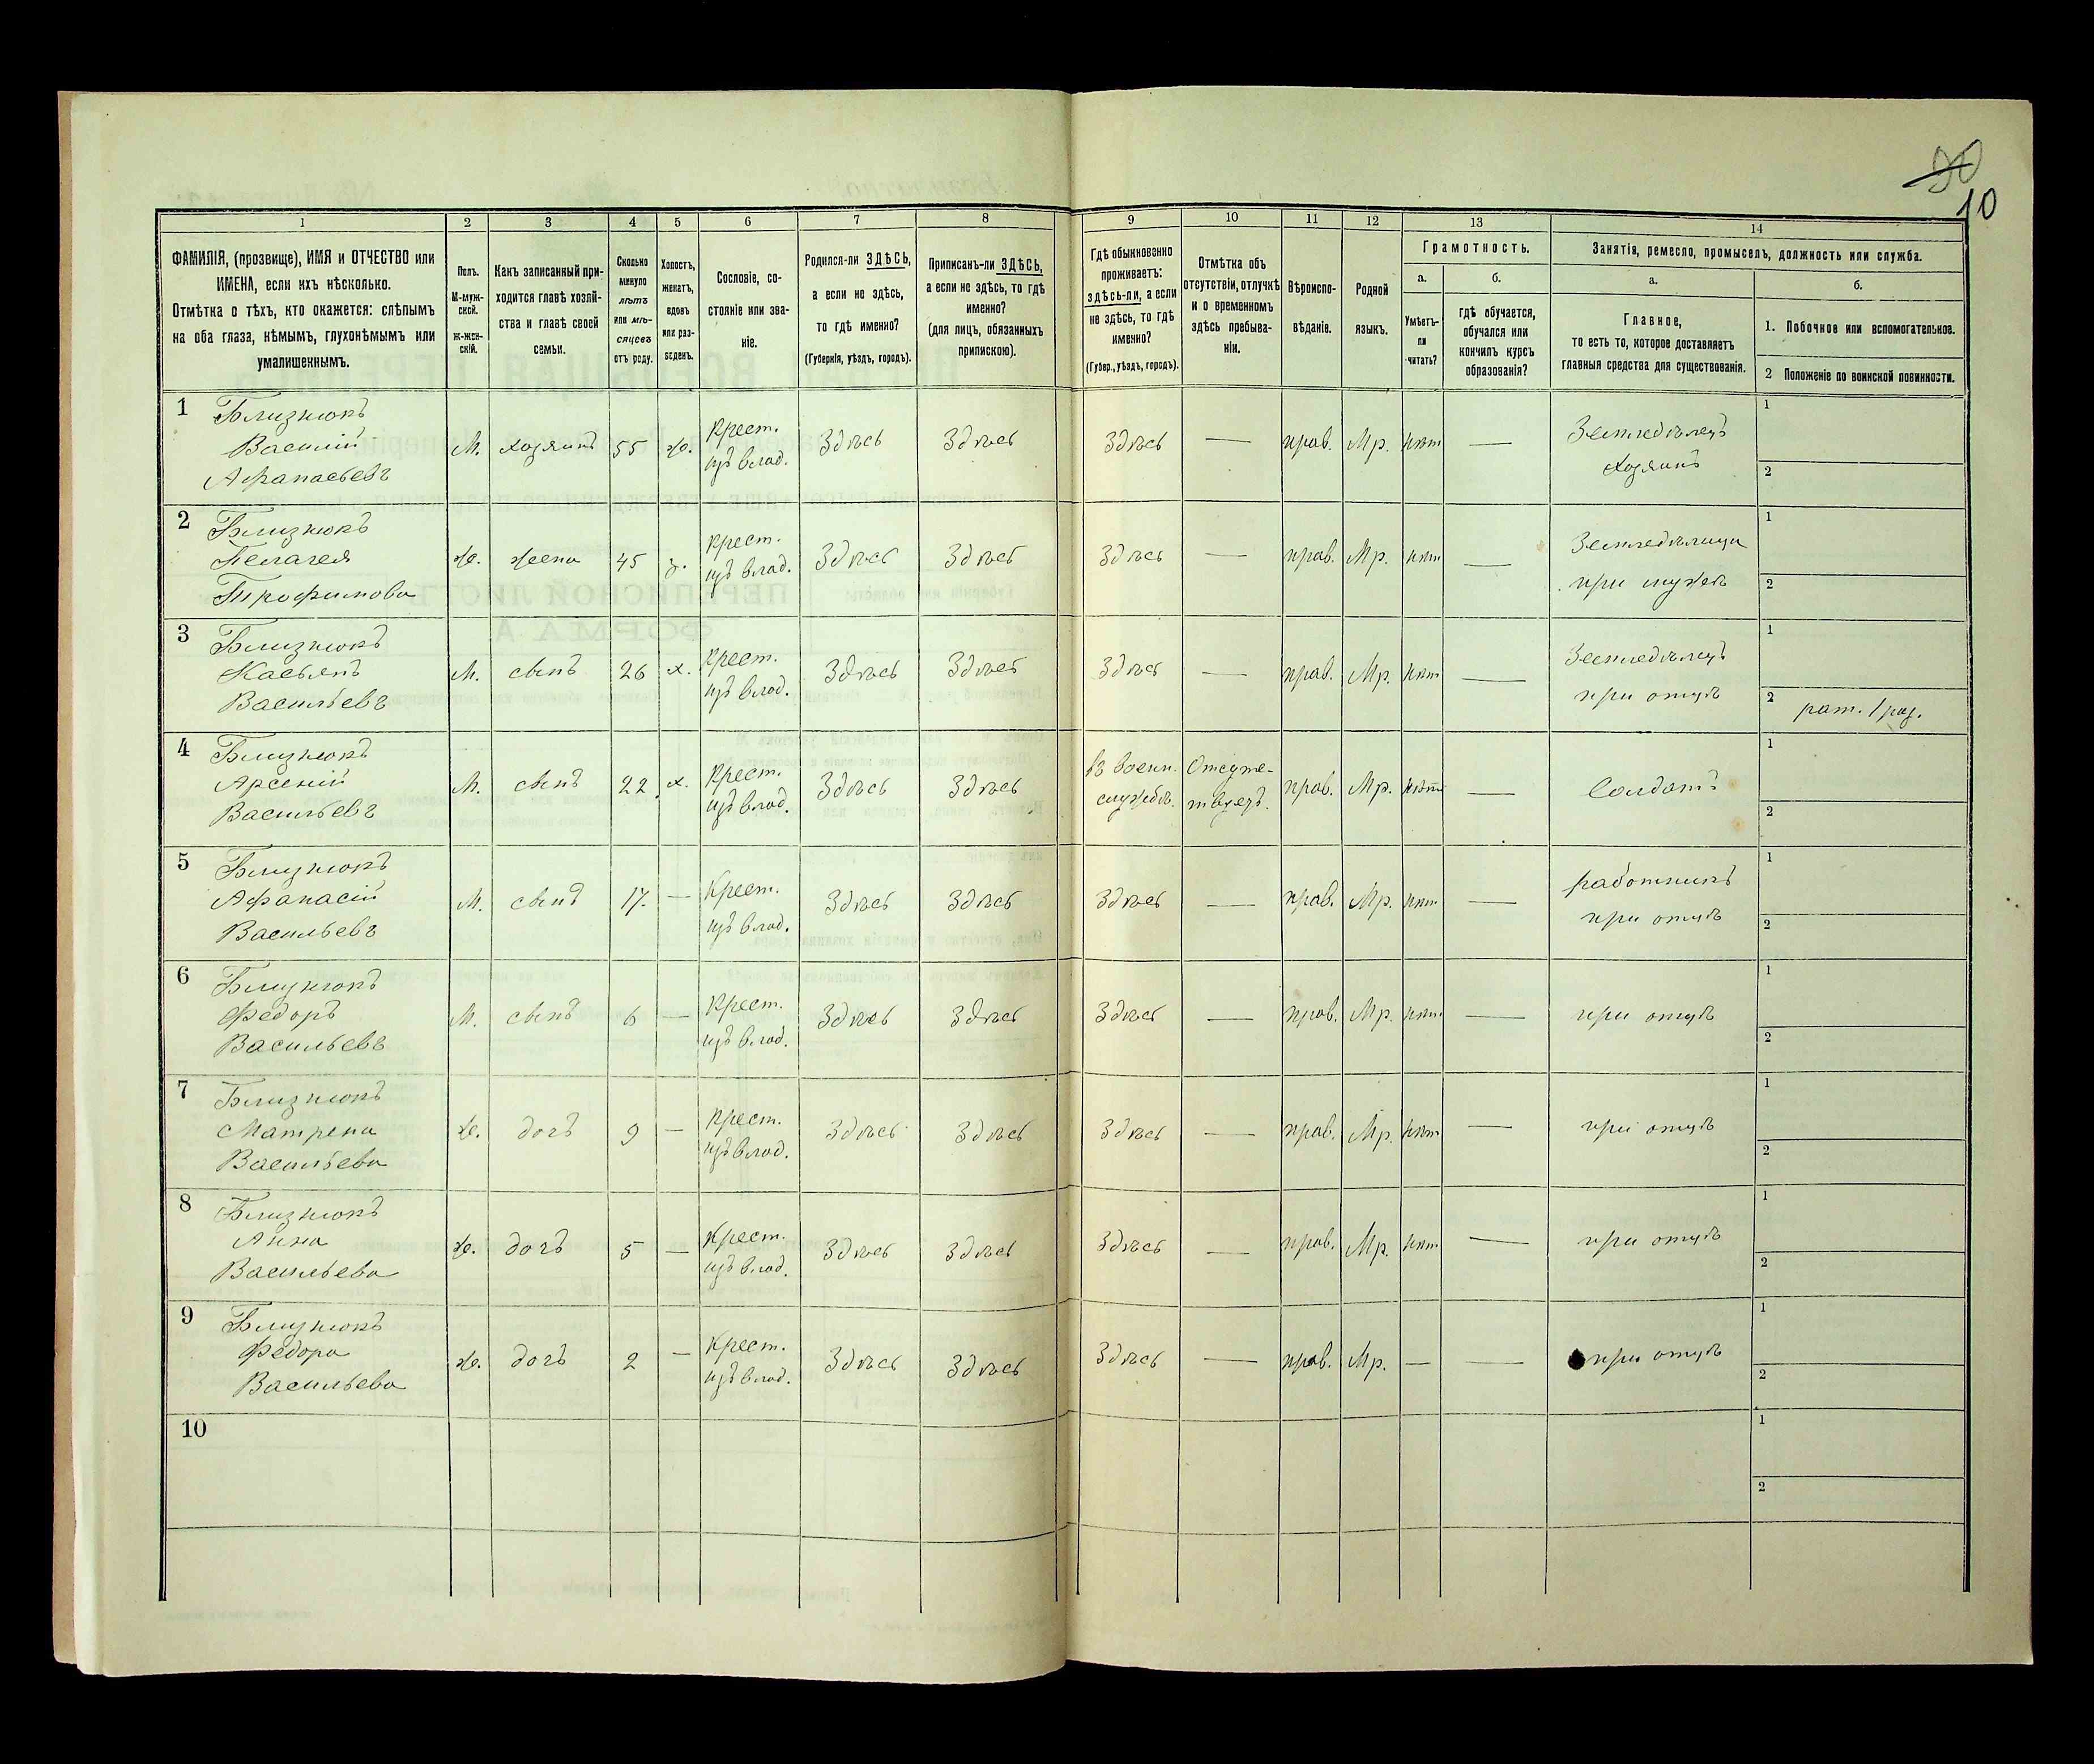 90
10
1 2 3 4 5 6 7 8 9 10 11 12 13 14
ФАМИЛІЯ, (прозвище), ИМЯ и ОТЧЕСТВО или
ИМЕНА, если ихъ нѣсколько.
Отмѣтка о тѣхъ, кто окажется: слѣпымъ
на оба глаза, нѣмымъ, глухонѣмымъ или
умалишеннымъ.
Полъ.
М-муж-
ской.
Ж-жен-
скій.
Какъ записанный при-
ходится главѣ хозяй-
ства и главѣ своей
семьи.
Сколько
минуло
лѣтъ
или мѣ-
сяцевъ
отъ роду.
Холостъ,
женатъ,
вдовъ
или раз-
веденъ.
Сословіе, со-
стояніе или зва-
ніе.
Родился-ли ЗДѢСЬ,
а если не здѣсь,
то гдѣ именно?
(Губернія, уѣздъ, городъ).
Приписанъ-ли ЗДѢСЬ,
а если не здѣсь, то гдѣ
именно?
(для лицъ, обязанныхъ
припискою).
Гдѣ обыкновенно
проживаетъ:
здѣсь-ли, а если
не здѣсь, то гдѣ
именно?
(Губер., уѣздъ, городъ).
Отмѣтка объ
отсутствіи, отлучкѣ
и о временномъ
здѣсь пребыва-
ніи.
Вѣроиспо-
вѣданіе.
Родной
языкъ.
Грамотность.
а.
Умѣетъ-
ли
читать?
б.
гдѣ обучается,
обучался или
кончилъ курсъ
образованія?
Занятія, ремесло, промыселъ, должность или служба.
а.
Главное,
то есть то, которое доставляетъ
главныя средства для существованія.
б.
1. Побочное или вспомогательное.
2 Положеніе по воинской повинности.
1 Близнюкъ
Василій
Афанасьевъ
М. хозяинъ 55 ж. Крест.
изъ влад.
Здѣсь Здѣсь Здѣсь — прав. Мр. нѣт — Земледѣлецъ
Хозяинъ
1
2
2 Близнюкъ
Пелагея
Трофимова
Ж. жена 45 з. Крест.
изъ влад.
Здѣсь Здѣсь Здѣсь — прав. Мр. нѣт — Земледѣлица
при мужѣ
1
2
3 Близнюкъ
Касьянъ
Васильевъ
М. сынъ 26 х. Крест.
изъ влад.
Здѣсь Здѣсь Здѣсь — прав. Мр. нѣт — Земледѣлецъ
при отцѣ
1
2 рат. 1 раз.
4 Близнюкъ
Арсеній
Васильевъ
М. сынъ 22 х. Крест.
изъ влад.
Здѣсь Здѣсь въ воен.
службѣ.
Отсутс-
твуетъ.
прав. Мр. нѣт — Солдатъ
1
2
5 Близнюкъ
Афанасій
Васильевъ
М. сынъ 17. — Крест.
изъ влад.
Здѣсь Здѣсь Здѣсь — прав. Мр. нѣт — работникъ
при отцѣ
1
2
6 Близнюкъ
Федоръ
Васильевъ
М. сынъ 6 — Крест.
изъ влад.
Здѣсь Здѣсь Здѣсь — прав. Мр. нѣт — при отцѣ
1
2
7 Близнюкъ
Матрена
Васильева
Ж. дочь 9 — Крест.
изъ влад.
Здѣсь Здѣсь Здѣсь — прав. Мр. нѣт — при отцѣ
1
2
8 Близнюкъ
Анна
Васильева
Ж. дочь 5 — Крест.
изъ влад.
Здѣсь Здѣсь Здѣсь — прав. Мр. нѣт — при отцѣ
1
2
9 Близнюкъ
Федора
Васильева
Ж. дочь 2 — Крест.
изъ влад.
Здѣсь Здѣсь Здѣсь — прав. Мр. — — при отцѣ
1
2
10
1
2